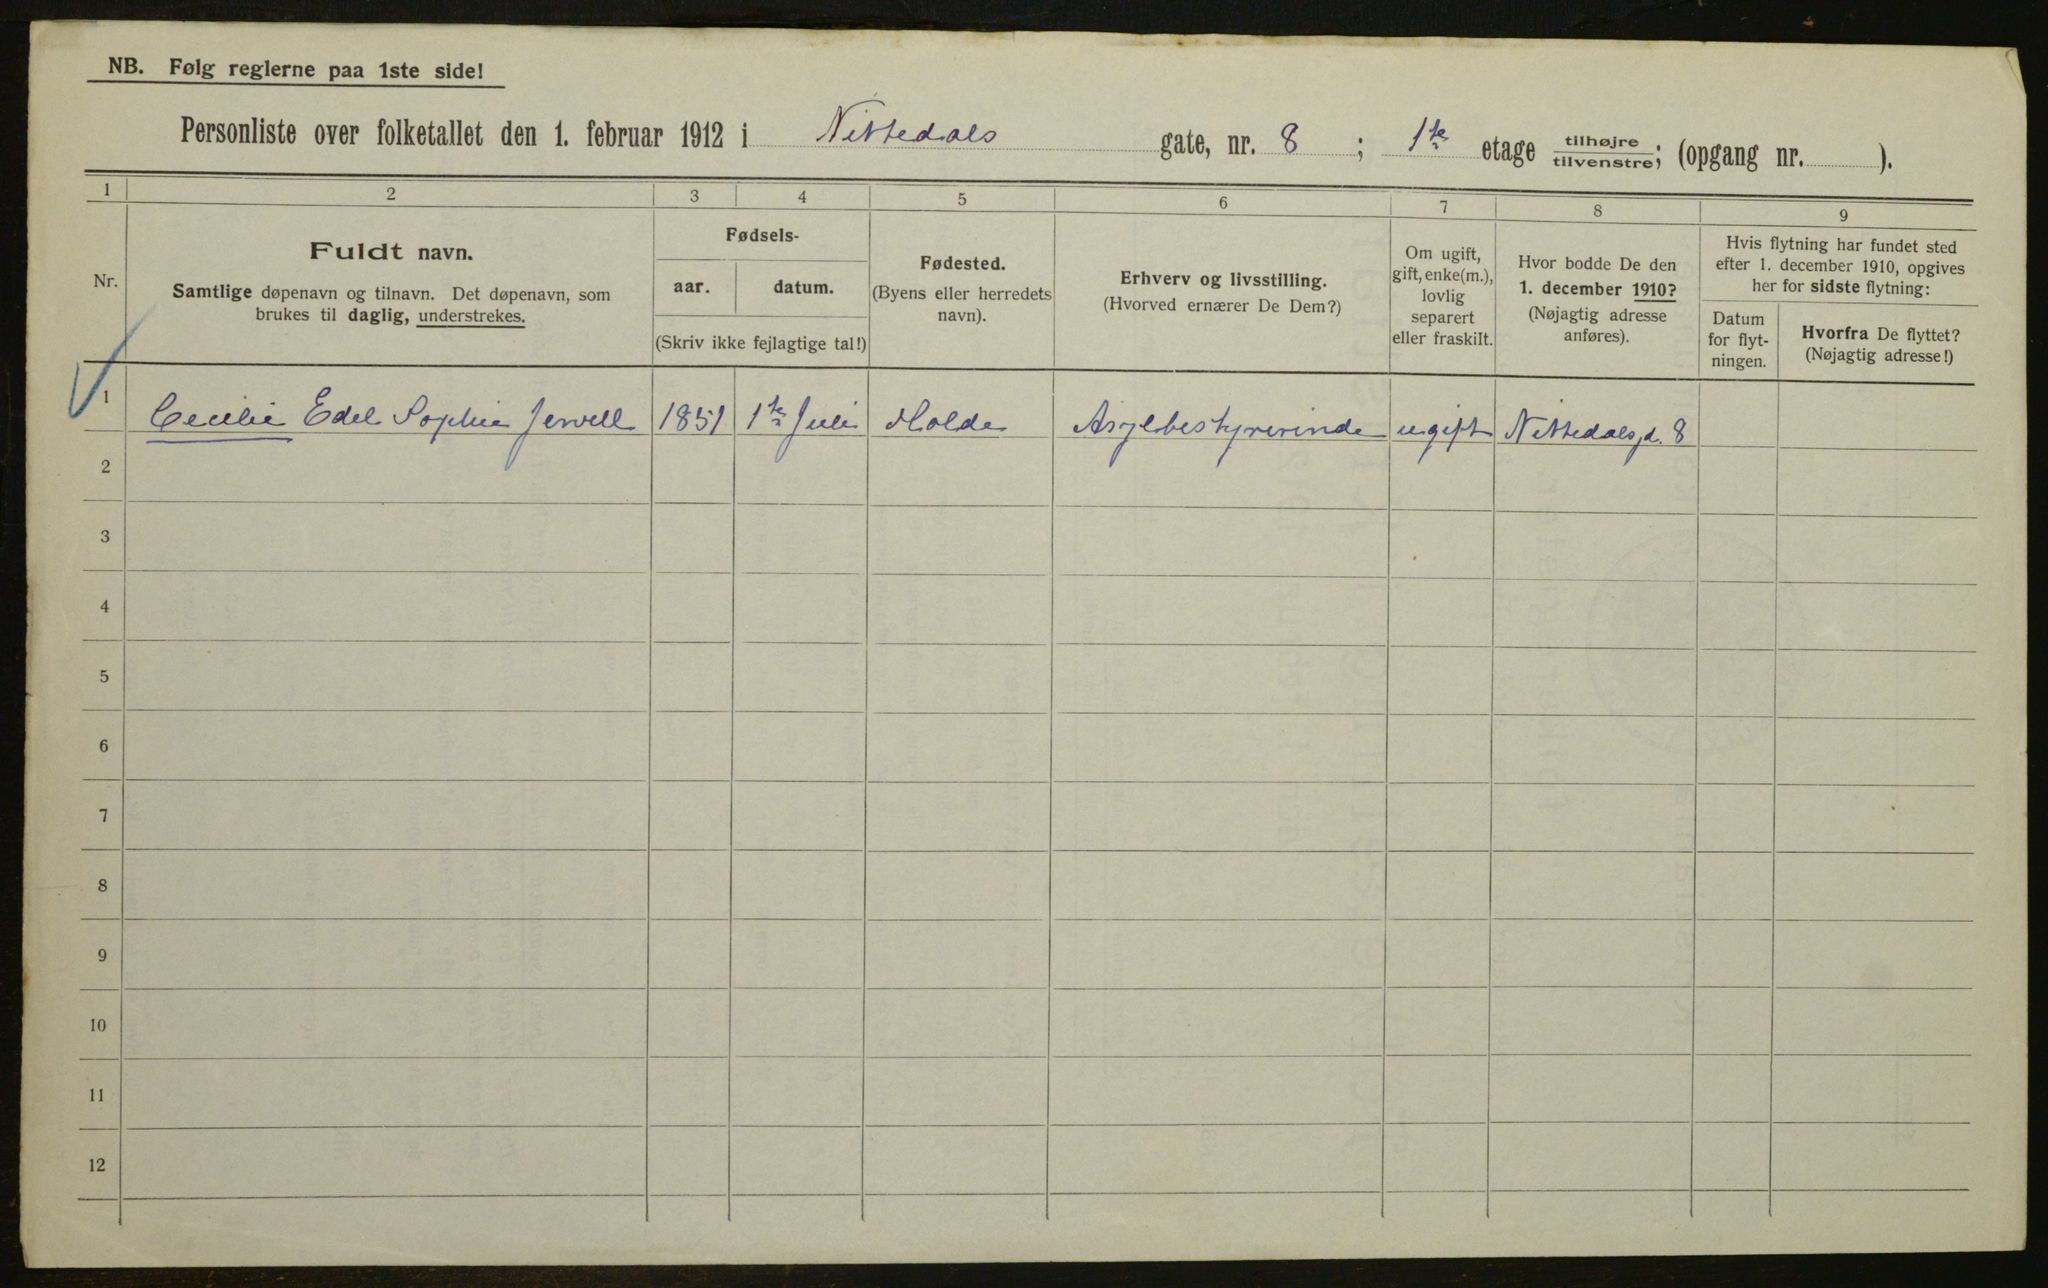 NB. Følg reglerne paa 1ste side!
Personliste over folketallet den 1. februar 1912 i Nittedals gate, nr. 8 ; 1te etage tilhøjre/tilvenstre; (opgang nr. ).
1 2 3 4 5 6 7 8 9
Nr.
Fuldt navn.
Samtlige døpenavn og tilnavn. Det døpenavn, som
brukes til daglig, understrekes.
Fødsels-
aar. datum.
(Skriv ikke fejlagtige tal!)
Fødested.
(Byens eller herredets
navn).
Erhverv og livsstilling.
(Hvorved ernærer De Dem?)
Om ugift,
gift, enke(m.),
lovlig
separert
eller fraskilt.
Hvor bodde De den
1. december 1910?
(Nøjagtig adresse
anføres).
Hvis flytning har fundet sted
efter 1. december 1910, opgives
her for sidste flytning:
Datum
for flyt-
ningen.
Hvorfra De flyttet?
(Nøjagtig adresse!)
1 Cecilie Edel Sophie Jervell 1851 1te Juli Molde Asylbestyrerinde ugift Nittedalsgd. 8
2
3
4
5
6
7
8
9
10
11
12